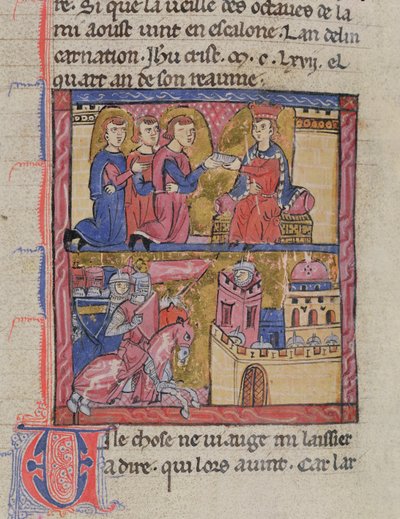 te. Si que la ueille des octaues de la
mi aoust uint en escalone. Lan delin
carnation. Ihu crist. m. c. lxvii. el
quart an de son reaume.
Ule chose ne ui auge mi laissier
a dire. qui lors auint. Car lar